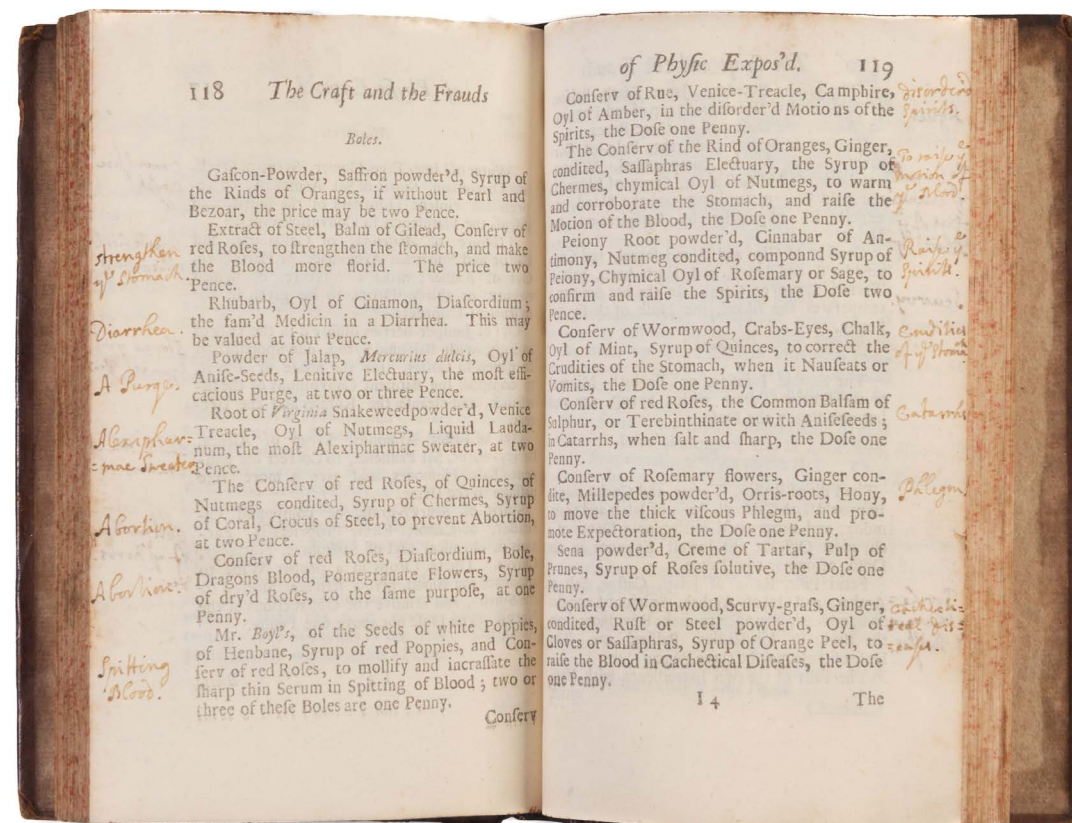 118 The Craft and the Frauds
Boles.
Gaſcon-Powder, Saffron powder'd, Syrup of
the Rinds of Oranges, if without Pearl and
Bezoar, the price may be two Pence.
Extract of Steel, Balm of Gilead, Conſerv of
red Roſes, to ſtrengthen the ſtomach, and make
the Blood more florid. The price two
Pence.
strengthen
yᵉ Stomach.
Rhubarb, Oyl of Cinamon, Diaſcordium;
the fam'd Medicin in a Diarrhea. This may
be valued at four Pence.
Diarrhea.
Powder of Jalap, Mercurius dulcis, Oyl of
Aniſe-Seeds, Lenitive Electuary, the moſt effi-
cacious Purge, at two or three Pence.
A Purge.
Root of Virginia Snakeweedpowder'd, Venice
Treacle, Oyl of Nutmegs, Liquid Lauda-
num, the moſt Alexipharmac Sweater, at two
Pence.
Alexiphar=
=mac Sweater
The Conſerv of red Roſes, of Quinces, of
Nutmegs condited, Syrup of Chermes, Syrup
of Coral, Crocus of Steel, to prevent Abortion,
at two Pence.
Abortion.
Conſerv of red Roſes, Diaſcordium, Bole,
Dragons Blood, Pomegranate Flowers, Syrup
of dry'd Roſes, to the ſame purpoſe, at one
Penny.
Abortion.
Mr. Boyl's, of the Seeds of white Poppies,
of Henbane, Syrup of red Poppies, and Con-
ſerv of red Roſes, to mollify and incraſſate the
ſharp thin Serum in Spitting of Blood; two or
three of theſe Boles are one Penny.
Spitting
Blood.
Conſerv
of Phyſic Expos'd. 119
Conſerv of Rue, Venice-Treacle, Camphire,
Oyl of Amber, in the diſorder'd Motions of the
Spirits, the Doſe one Penny.
disorder'd
Spirits.
The Conſerv of the Rind of Oranges, Ginger,
condited, Saſſaphras Electuary, the Syrup of
Chermes, chymical Oyl of Nutmegs, to warm
and corroborate the Stomach, and raiſe the
Motion of the Blood, the Doſe one Penny.
To raise yᵉ
motion of
yᵉ Blood.
Peiony Root powder'd, Cinnabar of An-
timony, Nutmeg condited, componnd Syrup of
Peiony, Chymical Oyl of Roſemary or Sage, to
confirm and raiſe the Spirits, the Doſe two
Pence.
Raise yᵉ
Spirits.
Conſerv of Wormwood, Crabs-Eyes, Chalk,
Oyl of Mint, Syrup of Quinces, to correct the
Crudities of the Stomach, when it Nauſeats or
Vomits, the Doſe one Penny.
Crudities
of yᵉ Stoma
Conſerv of red Roſes, the Common Balſam of
Sulphur, or Terebinthinate or with Aniſeſeeds;
in Catarrhs, when ſalt and ſharp, the Doſe one
Penny.
Catarrhs
Conſerv of Roſemary flowers, Ginger con-
dite, Millepedes powder'd, Orris-roots, Hony,
to move the thick viſcous Phlegm, and pro-
mote Expectoration, the Doſe one Penny.
Phlegm
Sena powder'd, Creme of Tartar, Pulp of
Prunes, Syrup of Roſes ſolutive, the Doſe one
Penny.
Conſerv of Wormwood, Scurvy-graſs, Ginger,
condited, Ruſt or Steel powder'd, Oyl of
Cloves or Saſſaphras, Syrup of Orange Peel, to
raiſe the Blood in Cachectical Diſeaſes, the Doſe
one Penny.
Cachecti=
=cal dis=
=eases.
I 4 The